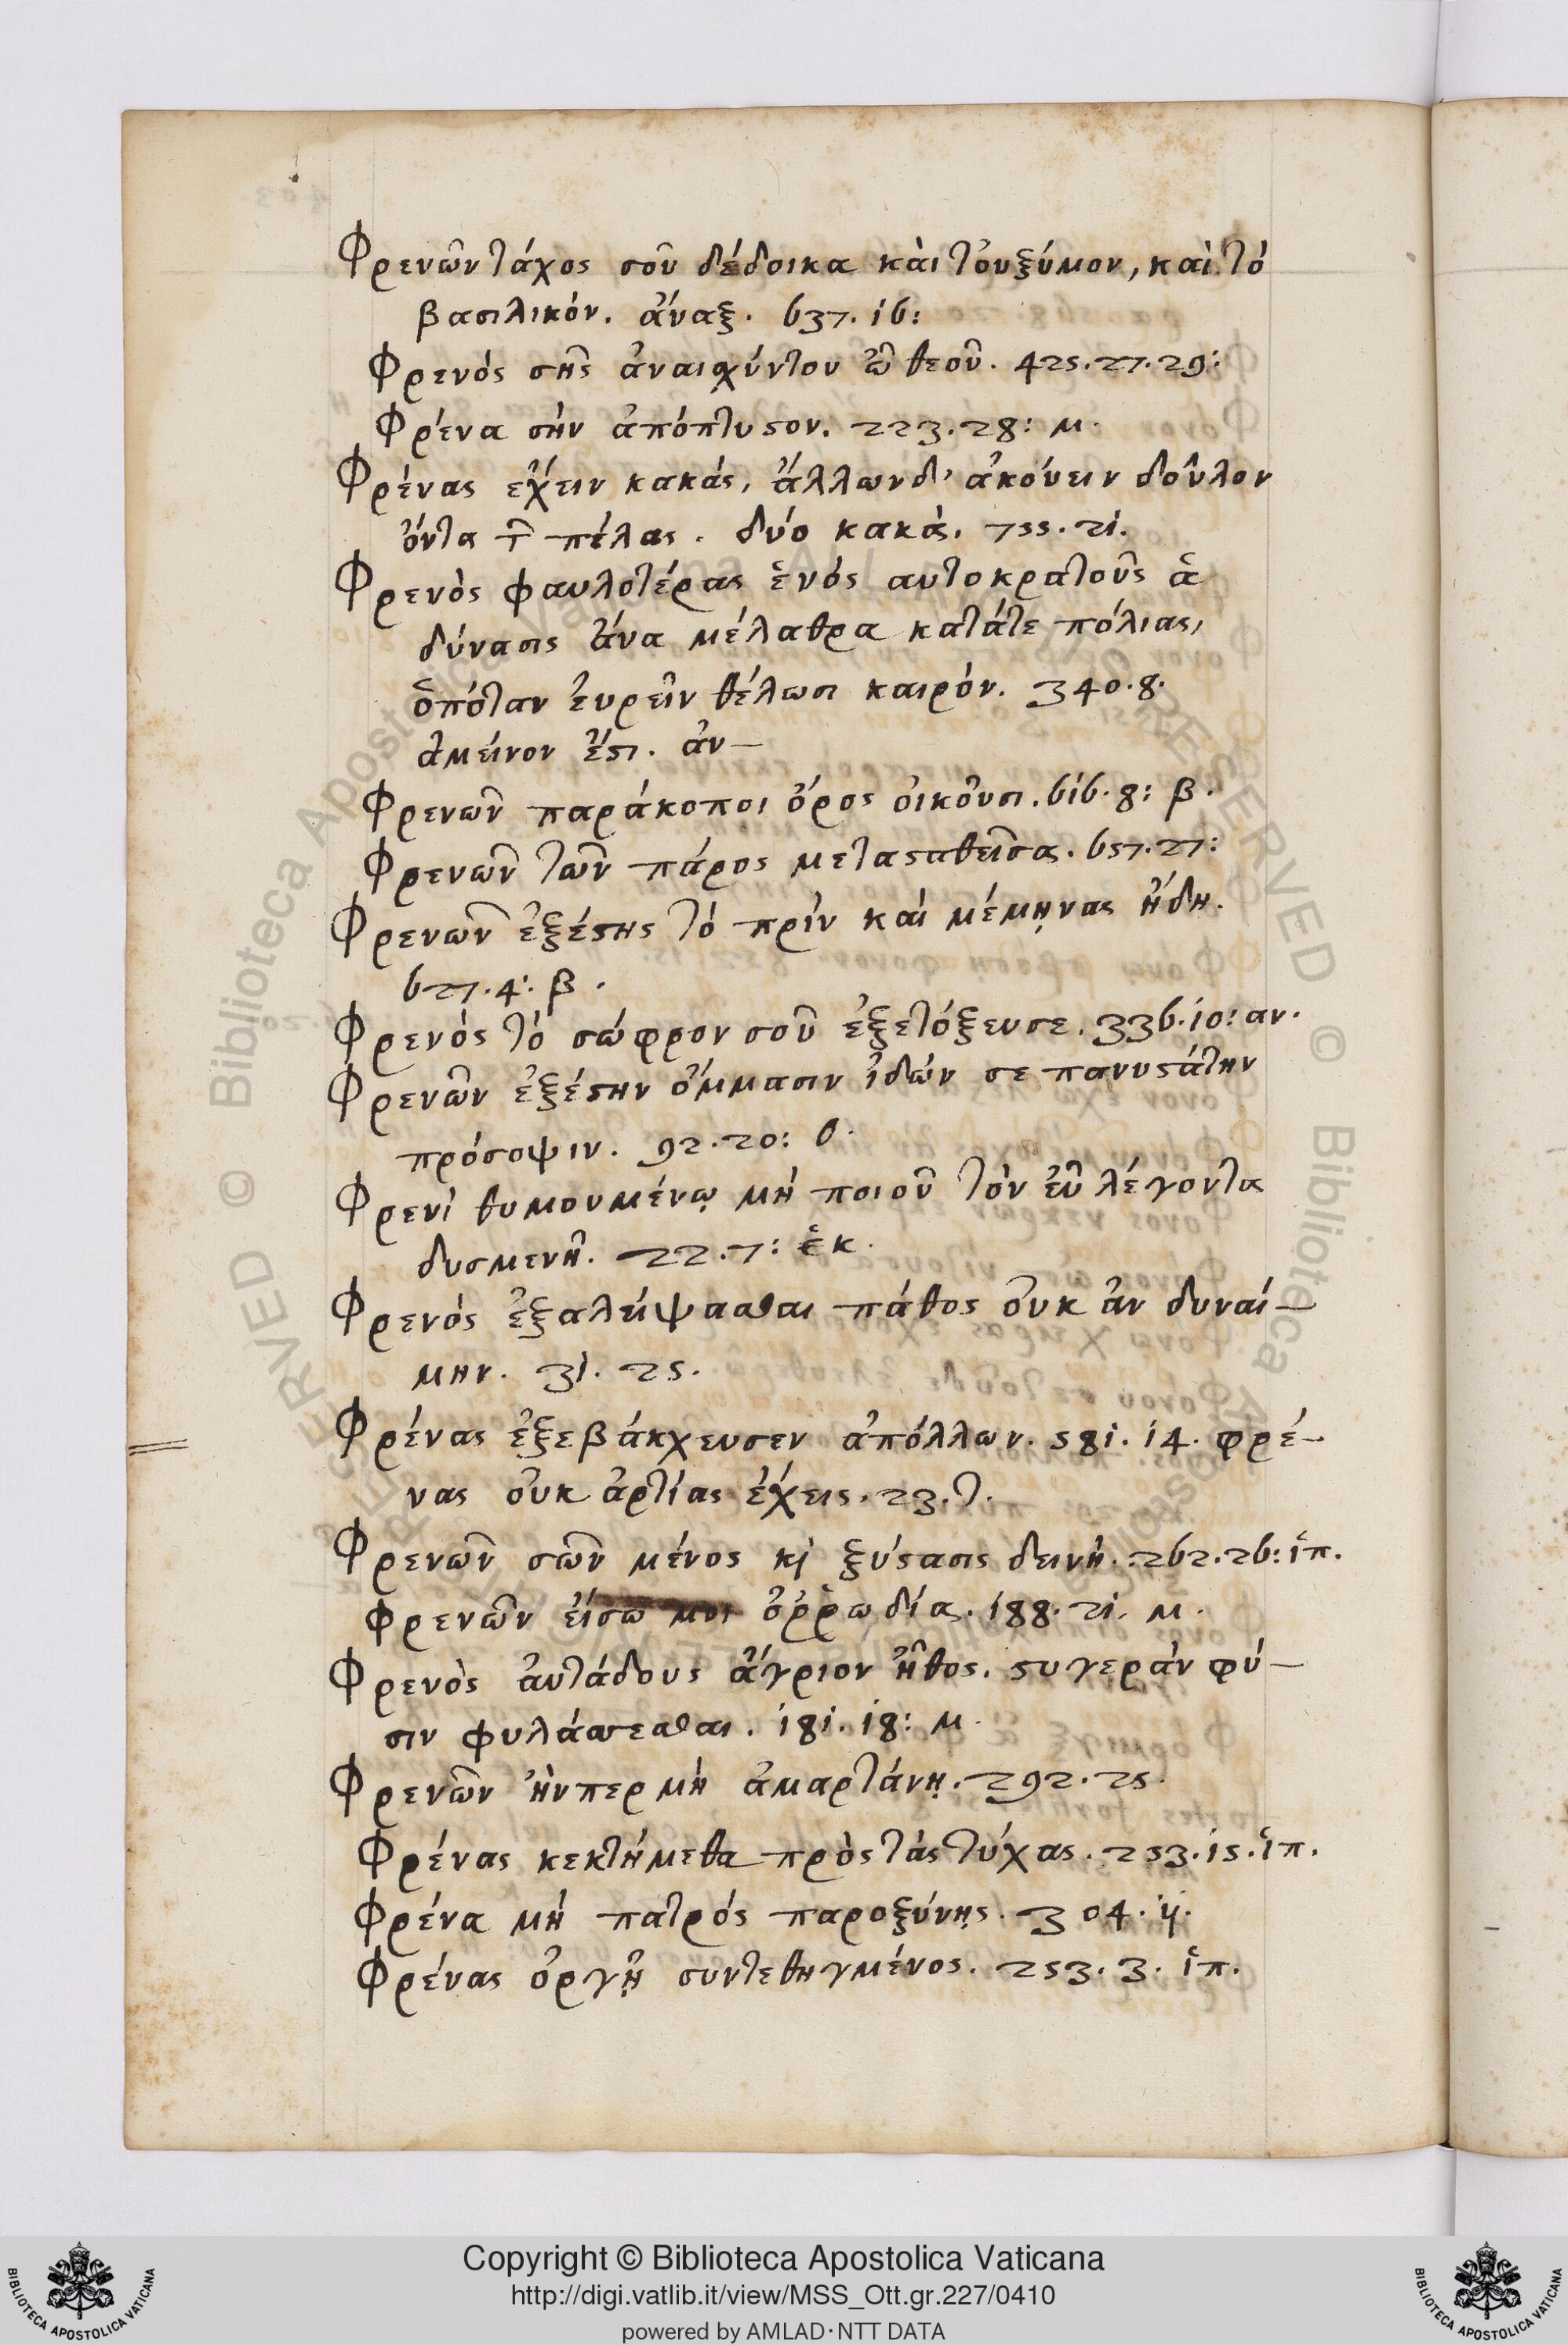 Φρενῶν τάχος σοῦ δέδοικα καὶ τὀυξύμον, καὶ τὸ
βασιλικόν. ἄναξ. 637. 16:
Φρενὸς σῆς ἀναισχύντου ὦ θεοῦ. 425. 27. 29:
Φρένα σὴν ἀπόπτυσον. 223. 28: μ.
Φρένας ἔχειν κακάς, ἄλλων δ' ἀκούειν δοῦλον
ὄντα τ̑ πέλας. δύο κακά. 755. 21.
Φρενὸς φαυλοτέρας ἑνὸς αυτοκρατοῦς ἁ
δύνασις ἄνα μέλαθρα κατάτε πόλιας,
ὁπόταν ἑυρεῖν θέλωσι καιρόν. 340. 8.
ἀμείνον ἔστι. ἀν—
Φρενῶν παράκοποι ὄρος ὀικοῦσι. 616. 8: β.
Φρενῶν τῶν πάρος μεταςαθεῖσα. 657. 27:
Φρενῶν ἐξέςης τὸ πρὶν καὶ μέμηνας ἤδη.
627. 4: β.
Φρενὸς τὸ σώφρον σοῦ ἐξετόξευσε. 336. 10: αν.
Φρενῶν ἐξέςην ὄμμασιν ἰδών σε πανυςάτην
πρόσοψιν. 92. 20: ο.
Φρενὶ θυμουμένῳ μὴ ποιοῦ τὸν εὖ λέγοντα
δυσμενῆ. 22. 7: ἑκ.
Φρενὸς ἐξαλείψασθαι πάθος οὐκ ἂν δυναί—
μην. 31. 25.
Φρένας ἐξεβάκχευσεν ἀπόλλων. 581. 14. φρέ—
νας οὐκ ἀρτίας ἔχεις. 23. τ.
Φρενῶν σῶν μένος κὶ ξύςασις δεινή. 262. 26: ἱπ.
Φρενῶν εἴσω μοι ὀῤῥωδία. 188. 21. μ.
Φρενὸς ἀυτάδους ἄγριον ἦθος. ςυγερὰν φύ—
σιν φυλάσσεσθαι. 181. 18: μ.
Φρενῶν ἤνπερ μὴ ἁμαρτάνῃ. 292. 25.
Φρένας κεκτήμεθα πρὸς τὰς τύχας. 253. 15. ἱπ.
Φρένα μὴ πατρὸς παροξύνῃς. 304. 11.
Φρένας ὀργῇ συντεθηγμένος. 253. 3. ἱπ.
Copyright © Biblioteca Apostolica Vaticana
http://digi.vatlib.it/view/MSS_Ott.gr.227/0410
powered by AMLAD·NTT DATA